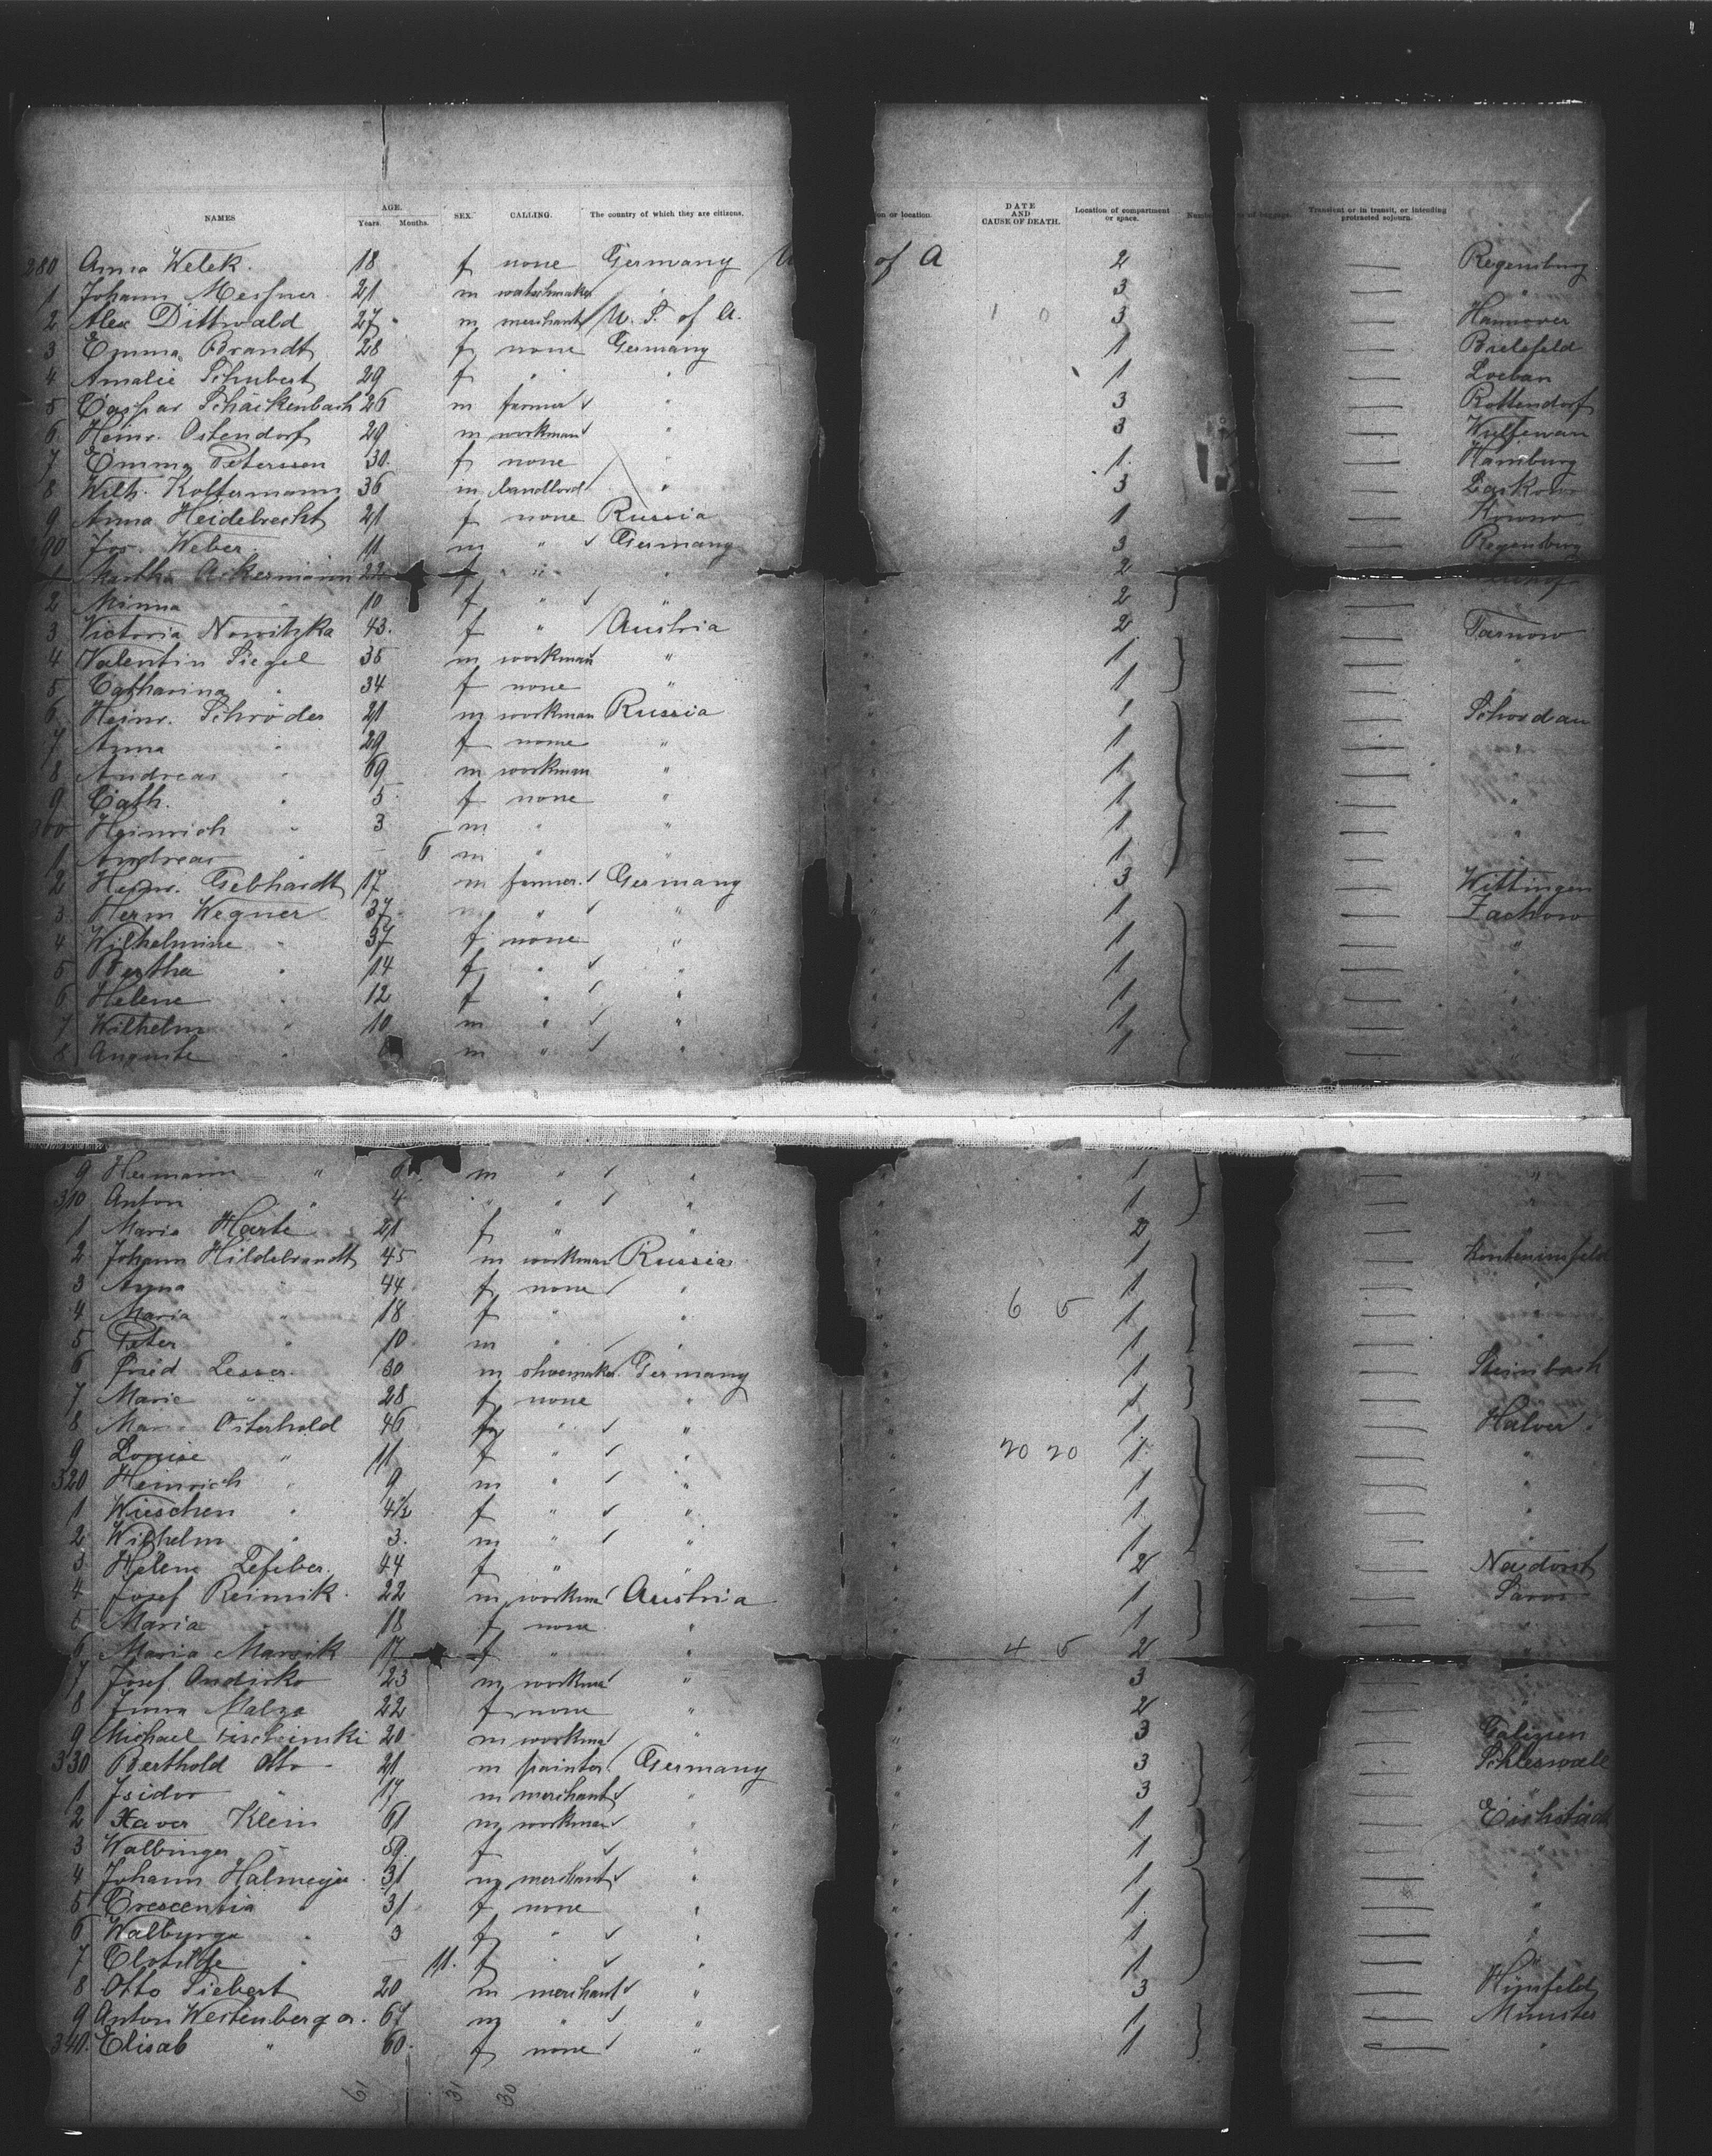 NAMES AGE. Years. Months. SEX. CALLING. The country of which they are citizens. on or location. DATE AND CAUSE OF DEATH. Location of compartment or space. Number of baggage. Transient or in transit, or intending protracted sojourn.
280 Anna Welek. 18 f none Germany U of A 2 — Regensburg
1 Johann 21 m watchmaker " 3 — "
2 Alex Dittwald 27 m merchant U. S. of A. 1 0 3 — Hannover
3 Emma Brandt 28 f none Germany 1 — Bielefeld
4 Amalie Schubert 29 f " " 1 — Loebau
5 Caspar Schäckenbach 26 m farmer " 3 — Rottendorf
6 Heinr. Ostendorf 29 m workman " 3 —
7 Emma Peterssen 30 f none " 1 — Hamburg
8 Wilh. Koltermann 36 m landlord " 3 —
9 Anna Heidebrecht 21 f none Russia 1 — Kowno
90 Jos. Weber 11 m " Germany 3 — Regensburg
1 Martha Ackermann 22 f " " 2
2 Minna " 10 f " " 2 —
3 Victoria Nowitzka 43 f " Austria 2 — Tarnow
4 Valentin Siegel 35 m workman " 1 — "
5 Catharina " 34 f none " 1 — "
6 Heinr. Schröder 21 m workman Russia 1 — Schordau
7 Anna " 29 f none " 1 — "
8 Andreas " 69 m workman " 1 — "
9 Cath. " 5 f none " 1 — "
300 Heinrich " 3 m " " 1 — "
1 Andreas " — 6 m " " 1 —
2 Heinr. Gebhardt 17 m farmer Germany 3 — Wittingen
3 Herm Wegner 37 m " " 1 — Zachow
4 Wilhelmine " 37 f none " 1 — "
5 Bertha " 14 f " " 1 — "
6 Helene " 12 f " " 1 — "
7 Wilhelm " 10 m " " 1 — "
8 Auguste " m " " 1 — "
9 Hermann " 6 m " " 1 — "
310 Anton " 4 " " " 1 —
1 Maria 21 f " " 2 —
2 Johann Hildebrandt 45 m workman Russia 1 —
3 Anna " 44 f none " 1 — "
4 Maria " 18 f " " 6 5 1 — "
5 Peter " 10 m " " 1 — "
6 Fried Lesser 30 m shoemaker Germany 1 — Steinbach
7 Marie " 28 f none " 1 — "
8 Maria Osterhold 46 f " " 1 — Halver
9 Louise " 11 f " " 20 20 1 — "
320 Heinrich " 9 m " " 1 — "
1 " 4½ f " " 1 — "
2 Wilhelm " 3 m " " 1 — "
3 Helene Lefeber 44 f " " 2 —
4 Josef Reimik 22 m workman Austria 1 —
5 Maria " 18 f none " 1 — "
6 Maria Marsik 17 f " " 4 5 2 — "
7 Josef Ondirko 23 m workman " 3 — "
8 22 f none " 2 — "
9 Michael 20 m workman " 3 — Galizien
330 Berthold Otto 21 m painter Germany 3 —
1 Isidor " 17 m merchant " 3 — "
2 Xaver Klein 61 m workman " 1 — Eichstädt
3 " 59 f " 1 — "
4 Johann Halmeyer 31 m merchant " 1 — "
5 Crescentia " 31 f none " 1 — "
6 Walburga " 3 f " " 1 — "
7 Clotilde " — 11 f " " 1 — "
8 Otto Siebert 20 m merchant " 3 — Hünfeld
9 Anton Westenberger 67 m " " 1 — Münster
340 Elisab " 60 f none " 1 — "
61 31 30